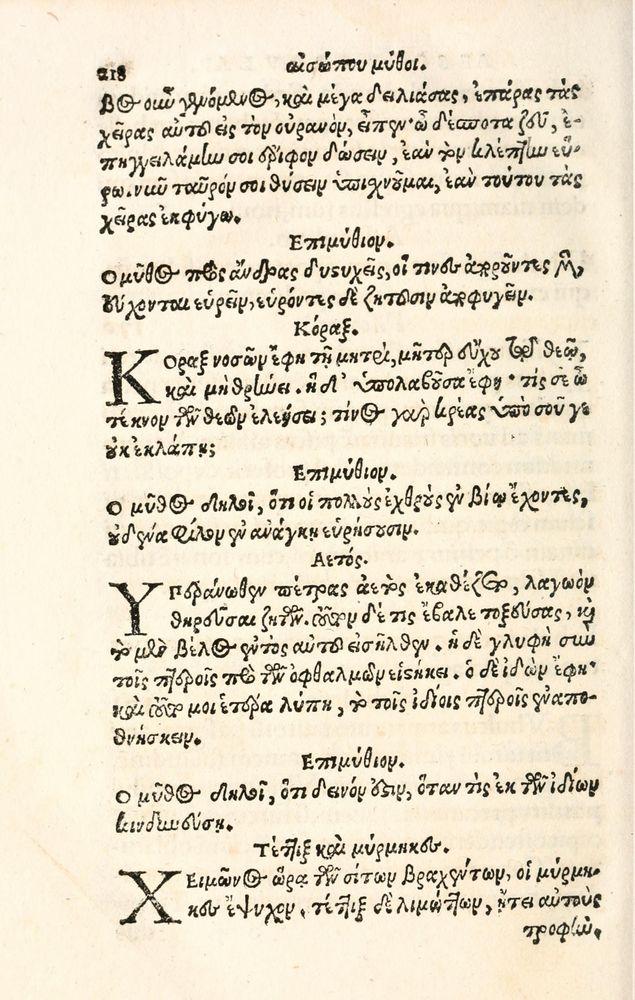 218 αἰσώπου μῦθοι.
βος οὖν γενόμενος, καὶ μέγα δειλιάσας, ἐπάρας τὰς
χεῖρας αὐτοῦ εἰς τὸν οὐρανὸν, εἶπεν· ὦ δέσποτα ζεῦ, ἐ-
πηγγειλάμην σοι ἔριφον δώσειν, ἐὰν τὸν κλέπτην εὕ-
ρω. νῦν ταῦρόν σοι θύσειν ὑπισχνοῦμαι, ἐὰν τούτου τὰς
χεῖρας ἐκφύγω.
Επιμύθιον.
Ο μῦθος πρὸς ἄνδρας δυστυχεῖς, οἵ τινες ἀποροῦντες μὲν,
εὔχονται εὑρεῖν, εὑρόντες δὲ ζητοῦσιν ἀποφυγεῖν.
Κόραξ.
Κοραξ νοσῶν ἔφη τῇ μητρὶ, μῆτερ εὔχου τῷ θεῷ,
καὶ μὴ θρήνει. ἡ δ' ὑπολαβοῦσα ἔφη· τίς σε ὦ
τέκνον τῶν θεῶν ἐλεήσει; τίνος γὰρ κρέας ὑπὸ σοῦ γε
οὐκ ἐκλάπη;
Επιμύθιον.
Ο μῦθος δηλοῖ, ὅτι οἱ πολλοὺς ἐχθροὺς ἐν βίῳ ἔχοντες,
οὐδένα φίλον ἐν ἀνάγκῃ εὑρήσουσιν.
Αετός.
Υπεράνωθεν πέτρας ἀετὸς ἐκαθέζετο, λαγωὸν
θηρεῦσαι ζητῶν. τοῦτον δέ τις ἔβαλε τοξεύσας, καὶ
τὸ μὲν βέλος ἐντὸς αὐτοῦ εἰσῆλθεν. ἡ δὲ γλυφὴ σὺν
τοῖς πτεροῖς πρὸ τῶν ὀφθαλμῶν εἱστήκει. ὁ δὲ ἰδὼν ἔφη·
καὶ τοῦτό μοι ἑτέρα λύπη, τὸ τοῖς ἰδίοις πτεροῖς ἐναπο-
θνήσκειν.
Επιμύθιον.
Ο μῦθος δηλοῖ, ὅτι δεινόν ἐστιν, ὅταν τὶς ἐκ τῶν ἰδίων
κινδυνεύσῃ.
Τέττιξ καὶ μύρμηκες.
Χειμῶνος ὥρᾳ τῶν σίτων βραχέντων, οἱ μύρμη-
κες ἔψυχον, τέττιξ δὲ λιμώττων, ᾔτει αὐτοὺς
τροφήν.